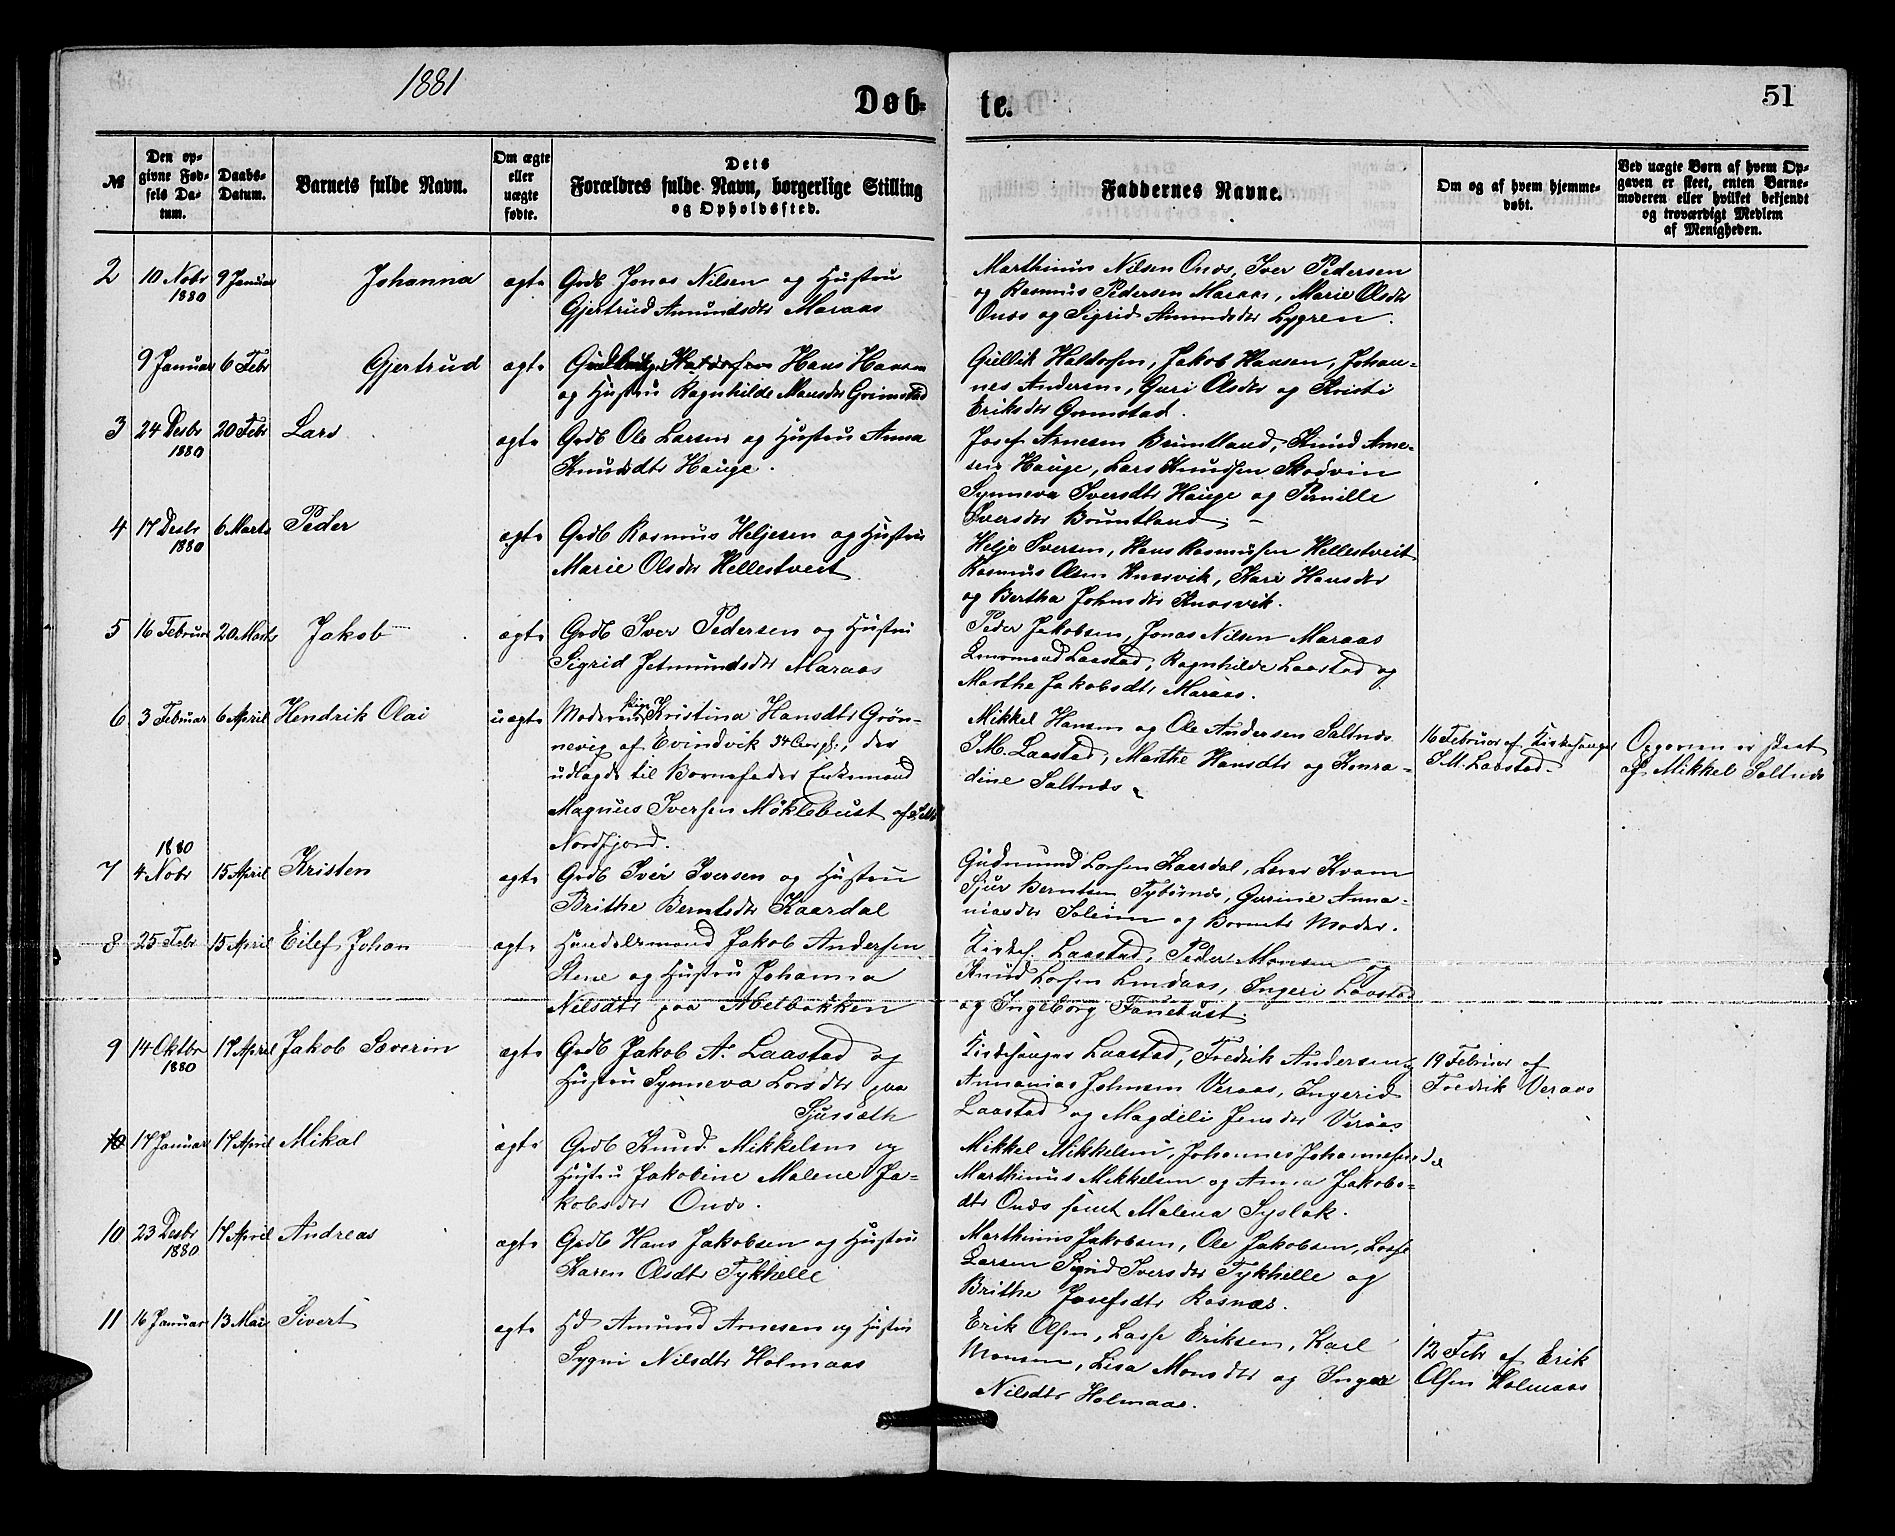 1881
Døb-
te.
51
№
Den op-
givne Fød-
sels Da-
tum.
Daabs-
Datum.
Barnets fulde Navn.
Om ægte
eller
uægte
fødte.
Dets
Forældres fulde Navn, borgerlige Stilling
og Opholdssted.
Faddernes Navne.
Om og af hvem hjemme-
døbt.
Ved uægte Børn af hvem Op-
gaven er skeet, enten Barne-
moderen eller hvilket bekjendt
og troværdigt Medlem
af Menigheden.
2
10 Nobr
1880
9 Januar
Johanna
ægte
Grdb Jonas Nilsen og Hustru
Gjertrud Amundsdtr Maraas
Marthinus Nilsen Onæs, Iver Pedersen
og Rasmus Pedersen Maraas, Marie Olsdtr
Onæs og Sigrid Amundsdtr Lygren.
9 Januar
6 Febr
Gjertrud
ægte
Hans Hansen
og Hustru Ragnhilde Monsdtr Grimstad
Gullik Haldorsen, Jakob Hansen, Johan-
nes Andersen, Guri Olsdtr og Kristi
Eriksdtr Grimstad.
3
24 Desbr
1880
20 Febr
Lars
ægte
Grdb Ole Larsen og Hustru Anna
Knudsdtr Hauge.
Josef Arnesen Bruntland, Knud Arne-
sen Hauge, Lars Knudsen Skodvin
Synneva Iversdtr Hauge og Pernille
Iversdtr Bruntland.
4
17 Desbr
1880
6 Marts
Peder
ægte
Grdb Rasmus Heljesen og Hustru
Marie Olsdtr Hellestveit
Helje Iversen, Hans Rasmussen Hellestveit
Rasmus Olsen Knarvik, Kari Hansdtr
og Bertha Johnsdtr Knarvik.
5
16 Februar
20 Marts
Jakob
ægte
Grdb Iver Pedersen og Hustru
Sigrid Jetmundsdtr Maraas
Peder Jakobsen, Jonas Nilsen Maraas
Laastad, Ragnhilde Laastad og
Marthe Jakobsdtr Maraas.
6
3 Februar
6 April
Hendrik Olai
uægte
Moderen Pige Kristina Hansdtr Grøn-
nevig af Evindvik 34 Aar gl., der
udlagde til Barnefader Enkemand
Magnus Iversen Møklebust af
Nordfjord.
Mikkel Hansen og Ole Andersen Saltnæs
S.M. Laastad, Marthe Hansdtr og Konra-
dine Saltnæs
16 Februar af Kirkesanger
S.M. Laastad.
Opgaven er skeet
af Mikkel Saltnæs
7
1880
4 Nobr
15 April
Kristen
ægte
Grdb Iver Iversen og Hustru
Brithe Berntsdtr Kaardal
Gudmund Larsen Kaardal, Lars Kvam
Sjur Berntsen Tybørnæs, Gurine Anna-
niasdtr Soleim og Barnets Moder.
8
25 Febr
15 April
Eilef Johan
ægte
Handelsmand Jakob Andersen
Stene og Hustru Johanna
Nilsdtr paa Abelbakken
Kirkes. Laastad, Peder Monsen
Knud Larsen Lindaas, Ingeri Laastad
og Ingeborg Fanebust.
9
14 Oktbr
1880
17 April
Jakob Severin
ægte
Grdb Jakob A. Laastad og
Hustru Synneva Larsdtr paa
Sjursæth
Kirkesanger Laastad, Fredrik Andersen,
Annanias Johnsen Veraas, Ingerid
Laastad og Magdeli Jensdtr Veraas
19 Februar af
Fredrik Veraas
17 Januar
17 April
Mikal
ægte
Grdb Knud Mikkelsen og
Hustru Jakobine Malene Ja-
kobsdtr Onæs.
Mikkel Mikkelsen, Johannes Johannesen
Marthinus Mikkelsen og Anna Jakobs-
dtr Onæs samt Malena Syslak.
10
23 Desbr
1880
17 April
Andreas
ægte
Grdb Hans Jakobsen og Hustru
Karen Olsdtr Tykhelle
Marthinus Jakobsen, Ole Jakobsen, Lasse
Larsen Sigrid Iversdtr Tykhelle og
Brithe Josefsdtr Rosnæs.
11
16 Januar
13 Mai
Sivert
ægte
Amund Arnesen og Hustru
Sygni Nilsdtr Holmaas
Erik Olsen, Lasse Eriksen, Karl
Monsen, Lisa Monsdtr og Inger
Nilsdtr Holmaas.
12 Febr af Erik
Olsen Holmaas